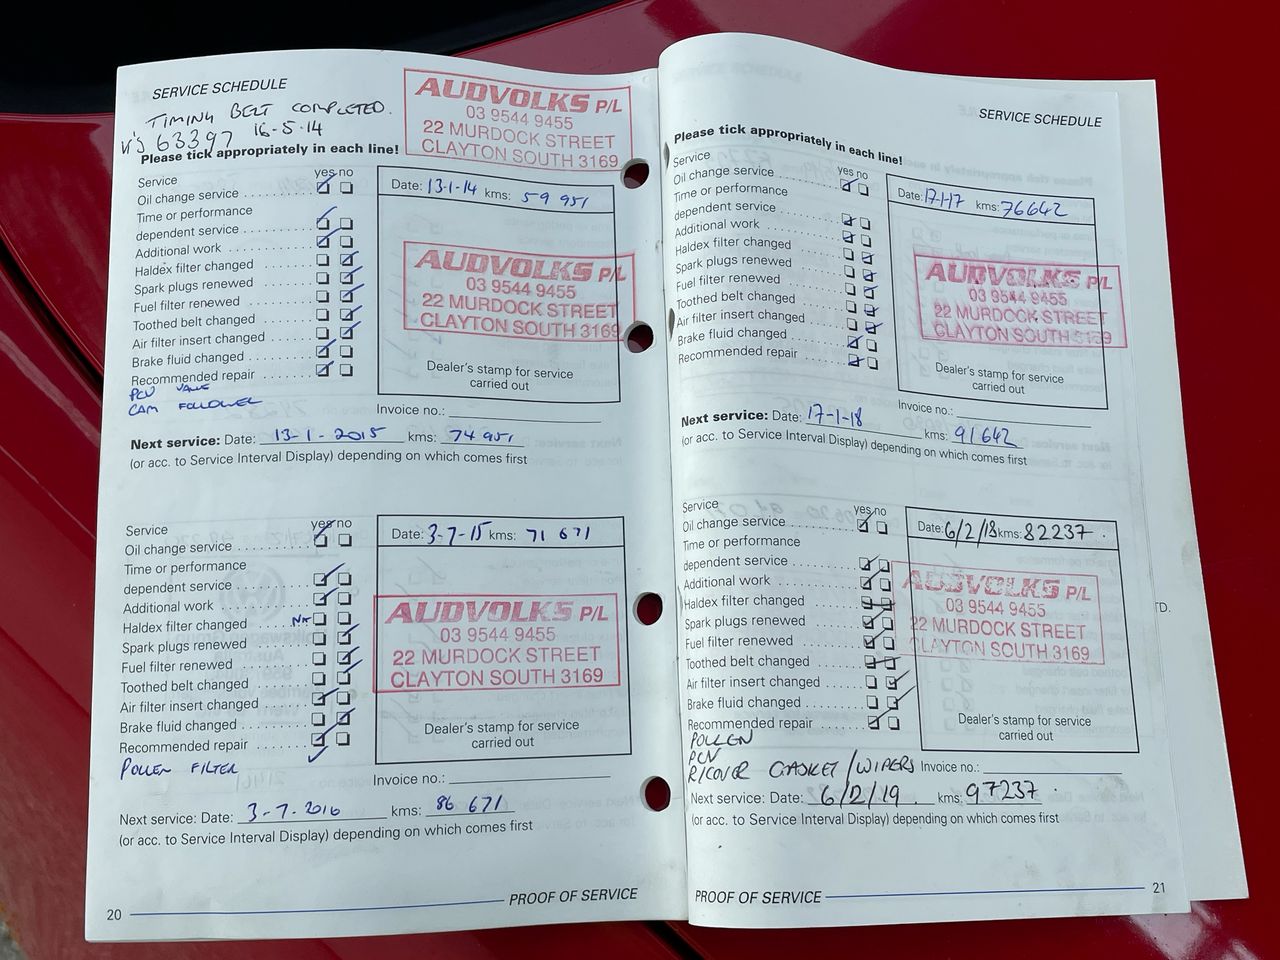 SERVICE SCHEDULE
TIMING BELT COMPLETED.
K's 63397 16-5-14
AUDVOLKS P/L
03 9544 9455
22 MURDOCK STREET
CLAYTON SOUTH 3169
Please tick appropriately in each line!
Service yes no
Oil change service
Time or performance
dependent service
Additional work
Haldex filter changed
Spark plugs renewed
Fuel filter renewed
Toothed belt changed
Air filter insert changed
Brake fluid changed
Recommended repair
PCV VALVE
CAM FOLLOWER
Date: 13-1-14 kms: 59 951
AUDVOLKS P/L
03 9544 9455
22 MURDOCK STREET
CLAYTON SOUTH 3169
Dealer's stamp for service
carried out
Invoice no.:
Next service: Date: 13-1-2015 kms: 74951
(or acc. to Service Interval Display) depending on which comes first
Service yes no
Oil change service
Time or performance
dependent service
Additional work
Haldex filter changed NA
Spark plugs renewed
Fuel filter renewed
Toothed belt changed
Air filter insert changed
Brake fluid changed
Recommended repair
POLLEN FILTER
Date: 3-7-15 kms: 71 671
AUDVOLKS P/L
03 9544 9455
22 MURDOCK STREET
CLAYTON SOUTH 3169
Dealer's stamp for service
carried out
Invoice no.:
Next service: Date: 3-7-2016 kms: 86 671
(or acc. to Service Interval Display) depending on which comes first
20 PROOF OF SERVICE
SERVICE SCHEDULE
Please tick appropriately in each line!
Service yes no
Oil change service
Time or performance
dependent service
Additional work
Haldex filter changed
Spark plugs renewed
Fuel filter renewed
Toothed belt changed
Air filter insert changed
Brake fluid changed
Recommended repair
Date: 17-1-17 kms: 76642
AUDVOLKS P/L
03 9544 9455
22 MURDOCK STREET
CLAYTON SOUTH 3169
Dealer's stamp for service
carried out
Invoice no.:
Next service: Date: 17-1-18 kms: 91642
(or acc. to Service Interval Display) depending on which comes first
Service yes no
Oil change service
Time or performance
dependent service
Additional work
Haldex filter changed
Spark plugs renewed
Fuel filter renewed
Toothed belt changed
Air filter insert changed
Brake fluid changed
Recommended repair
POLLEN
PCV
R/COVER GASKET/WIPERS
Date: 6/2/18 kms: 82237
AUDVOLKS P/L
03 9544 9455
22 MURDOCK STREET
CLAYTON SOUTH 3169
Dealer's stamp for service
carried out
Invoice no.:
Next service: Date: 6/2/19 kms: 97237
(or acc. to Service Interval Display) depending on which comes first
PROOF OF SERVICE 21
TD.